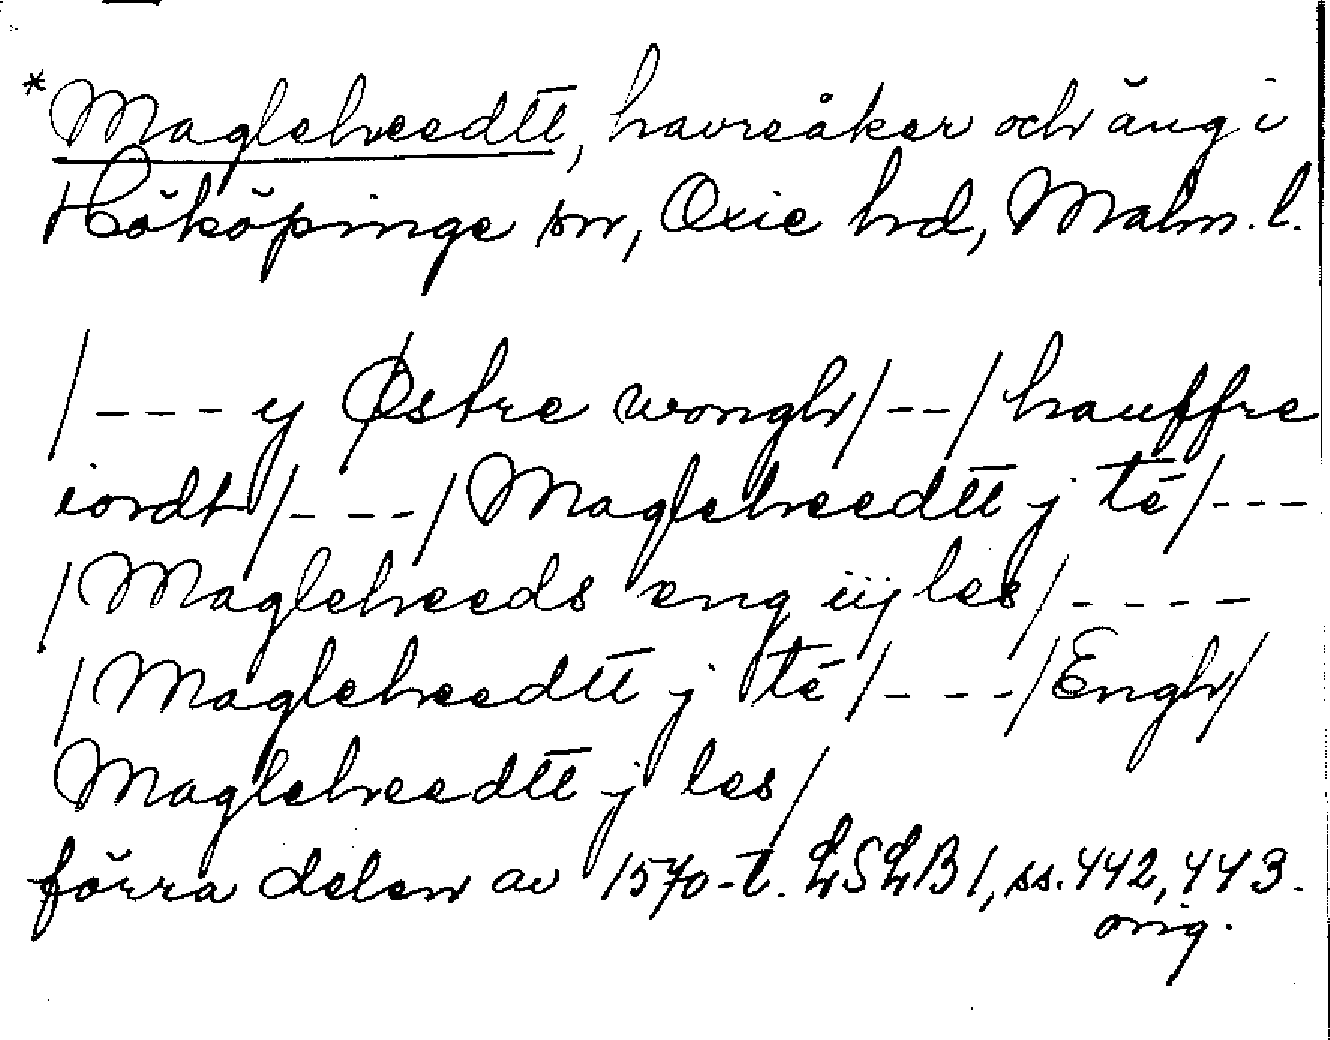 *Magleheedtt, havreåker och äng i
Hököpinge sn, Oxie hd, Malm. l.
/---y Østre wongh/--/hauffre
iordt/---/Magleheedtt j té/---
/Magleheeds eng iij les/----
/Magleheedtt j té/---/Engh/
Magleheedtt j les/
förra delen av 1570-t. LSLB1, ss. 442, 443.
orig.